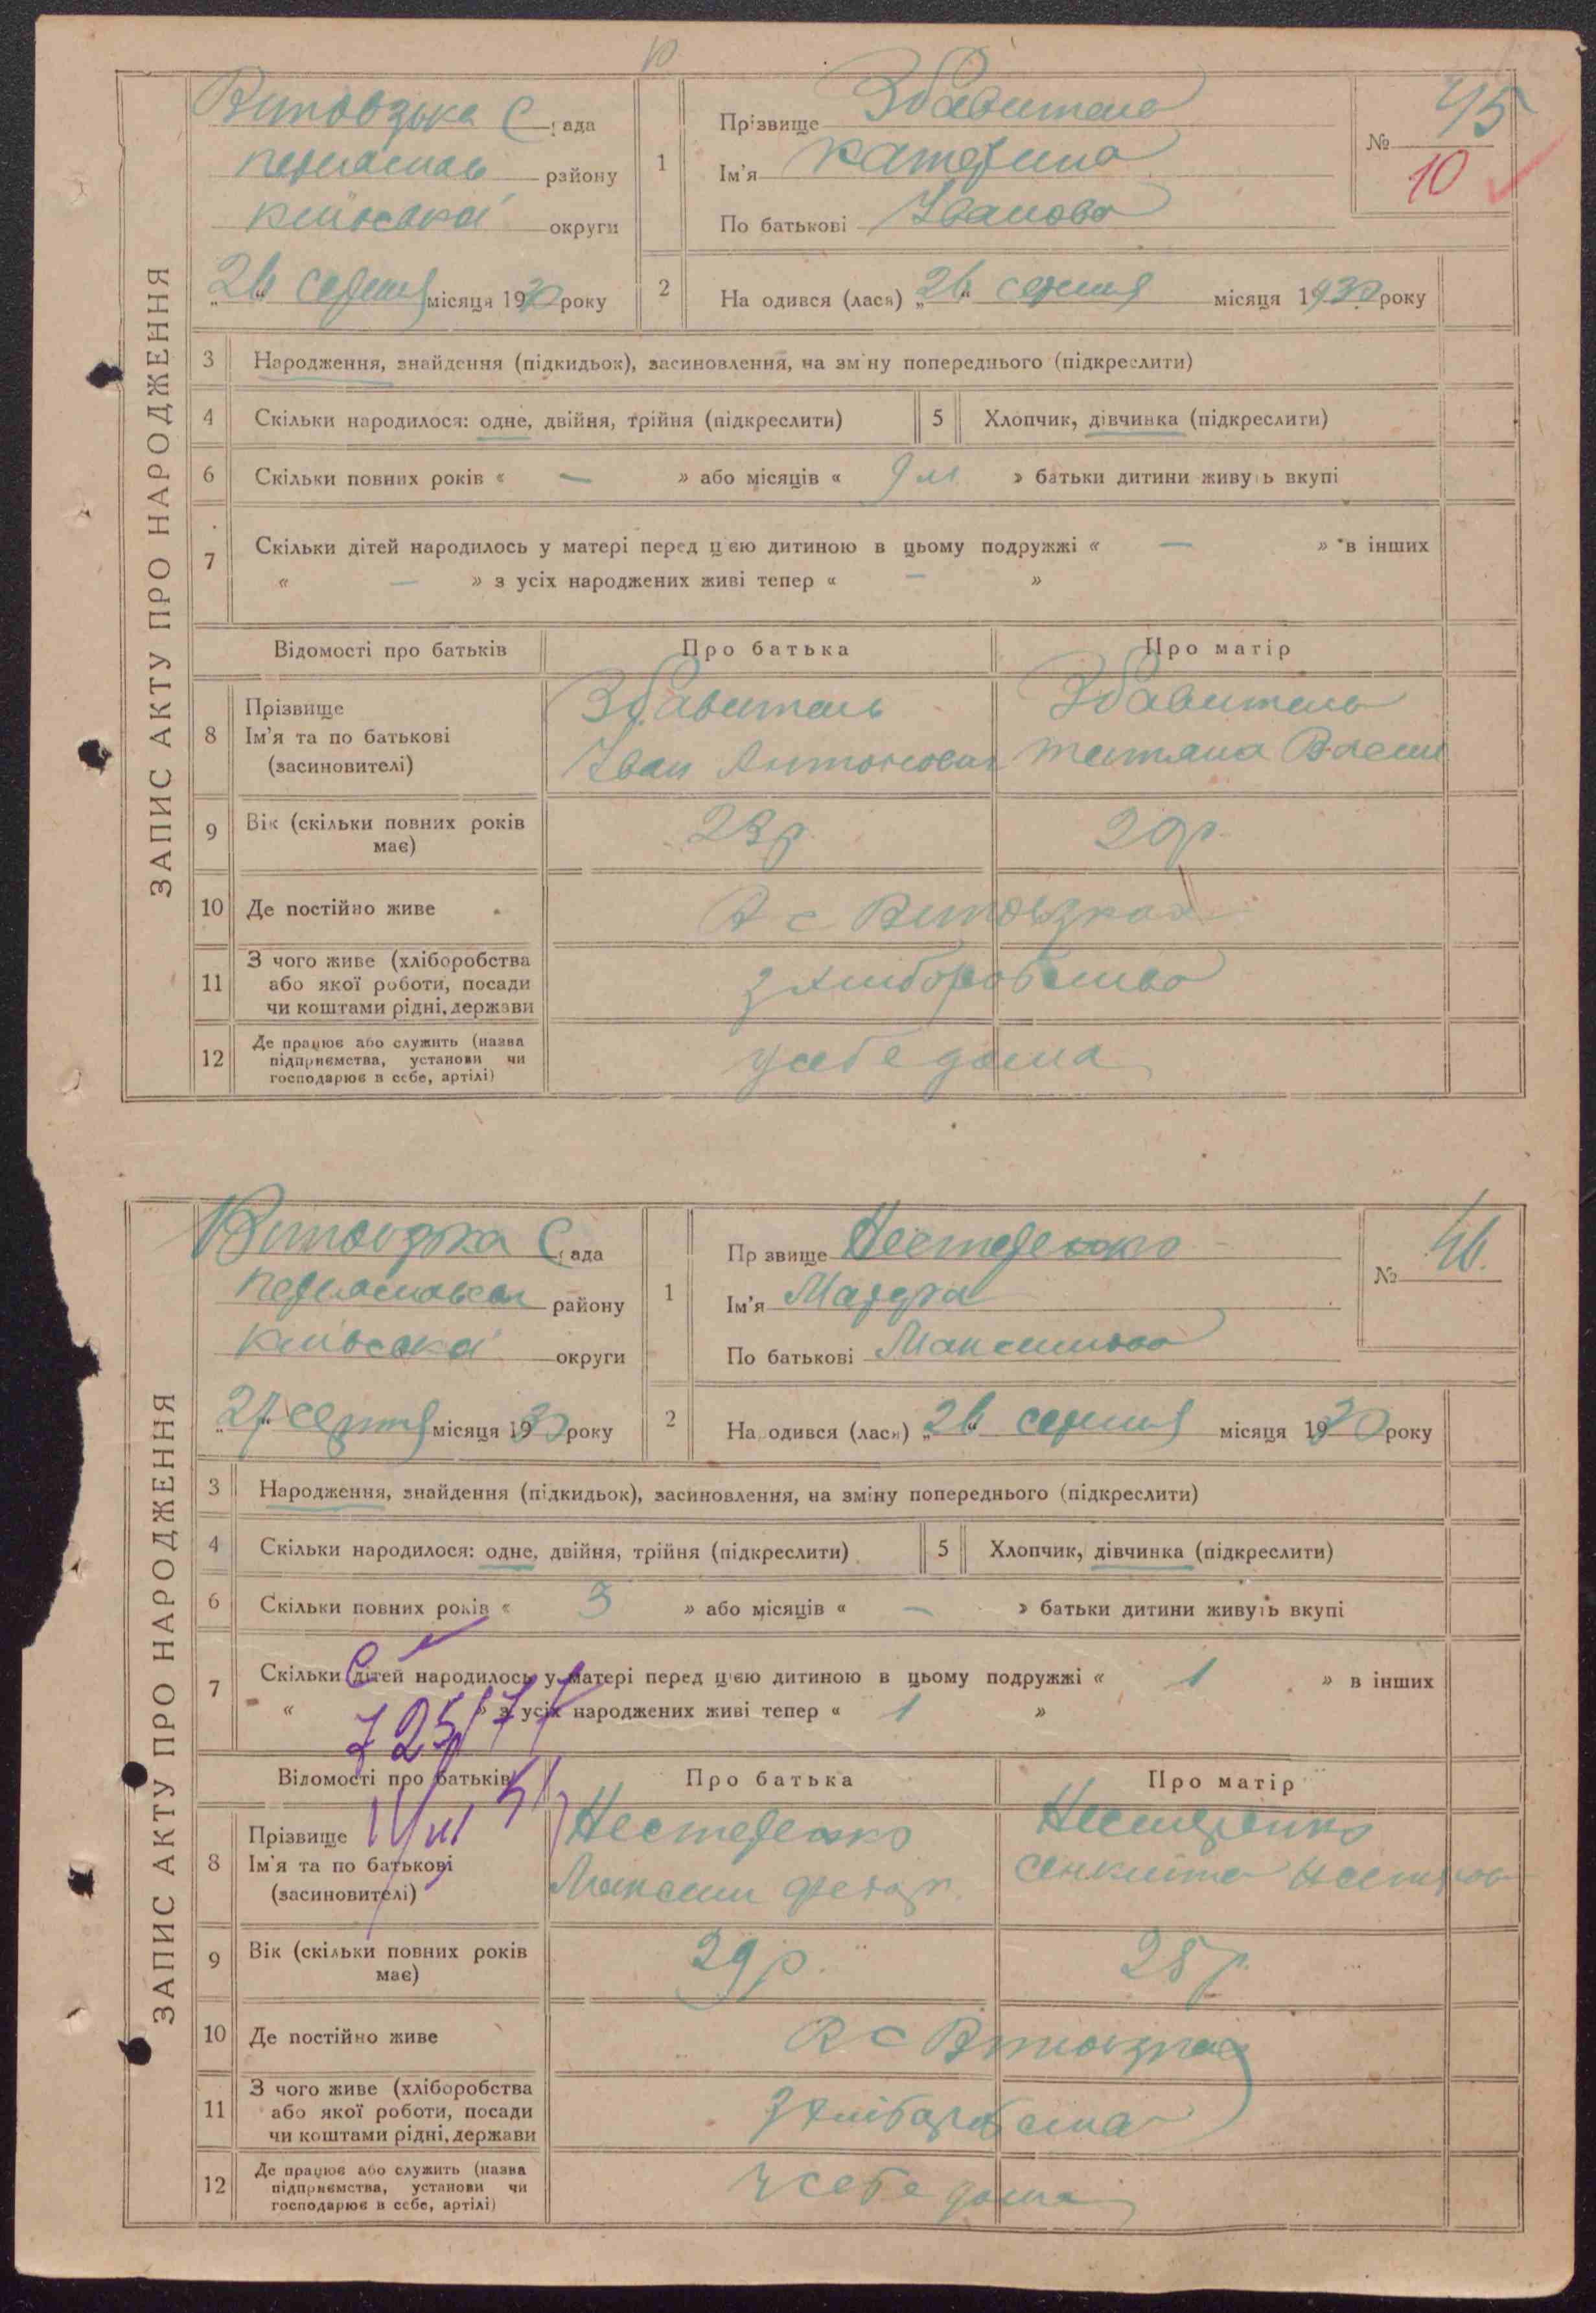 ЗАПИС АКТУ ПРО НАРОДЖЕННЯ
С рада
району
київської округи
„26“ серпня місяця 1930 року
1
Прізвище Збавитель
Ім'я Катерина
По батькові Іванова
№ 45
10
2
На одився (лася) „26“ серпня місяця 1930 року
3 Народження, знайдення (підкидьок), засиновлення, на зм ну попереднього (підкреслити)
4 Скільки народилося: одне, двійня, трійня (підкреслити) 5 Хлопчик, дівчинка (підкреслити)
6 Скільки повних років « — » або місяців « 9 м » батьки дитини живуть вкупі
7 Скільки дітей народилось у матері перед цією дитиною в цьому подружжі « — » в інших
« — » з усіх народжених живі тепер « — »
Відомості про батьків Про батька Про матір
8 Прізвище Збавитель Збавитель
Ім'я та по батькові Іван Антонович Татяна Васил
(засиновителі)
9 Вік (скільки повних років має) 23р. 20р.
10 Де постійно живе В с
11 З чого живе (хліборобства
або якої роботи, посади
чи коштами рідні, держави
з хліборобства
12 Де працює або служить (назва
підприємства, установи чи
господарює в себе, артілі)
у себе дома
ЗАПИС АКТУ ПРО НАРОДЖЕННЯ
С рада
району
київської округи
„27“ серпня місяця 1930 року
1
Пр звище Нестеренко
Ім'я
По батькові Максимова
№ 46.
2
На одився (лася) „26“ серпня місяця 1930 року
3 Народження, знайдення (підкидьок), засиновлення, на зміну попереднього (підкреслити)
4 Скільки народилося: одне, двійня, трійня (підкреслити) 5 Хлопчик, дівчинка (підкреслити)
6 Скільки повних років « 3 » або місяців « — » батьки дитини живуть вкупі
7 Скільки дітей народилось у матері перед цією дитиною в цьому подружжі « 1 » в інших
« » з усіх народжених живі тепер « 1 »
Відомості про батьків Про батька Про матір
8 Прізвище Нестеренко Нестеренко
Ім'я та по батькові Максим
(засиновителі)
9 Вік (скільки повних років має) 29р. 25р.
10 Де постійно живе В с
11 З чого живе (хліборобства
або якої роботи, посади
чи коштами рідні, держави
12 Де працює або служить (назва
підприємства, установи чи
господарює в себе, артілі)
у себе дома